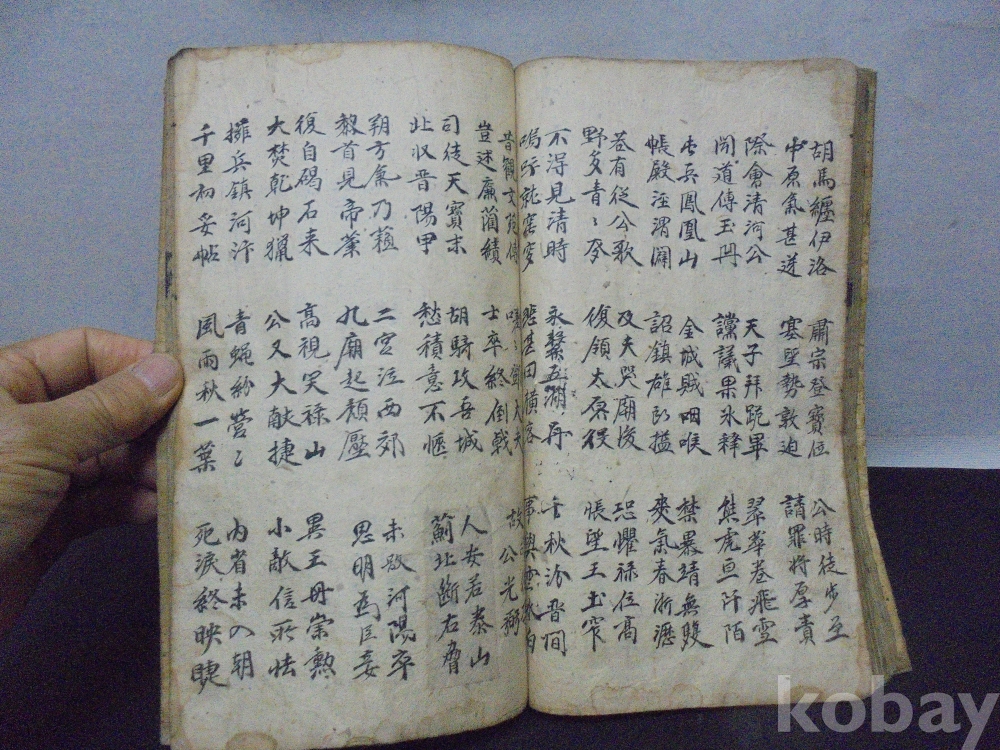 胡馬纏伊洛
中原氣甚逆
肅宗登寶位
塞望勢敦迫
公時徒步至
請罪將厚責
際會清河公
間道傳玉冊
天子拜跪畢
讜議果氷釋
翠華卷飛雪
熊虎亘阡陌
屯兵鳳凰山
帳殿涇渭闢
金城賊咽喉
詔鎮雄所搤
禁暴靖無雙
爽氣春淅瀝
巷有從公歌
野多青〻麥
及夫哭廟後
復領太原役
恐懼祿位高
悵望王土窄
不得見清時
嗚呼就窀穸
永繫五湖舟
悲甚田橫客
千秋汾晋間
事與雲水白
昔觀文苑傳
豈述廉藺績
嗟〻鄧大夫
士卒終倒戟
故 公光弼
司徒天寶末
北收晋陽甲
胡騎攻吾城
愁積意不愜
人安若泰山
薊北斷右脅
朔方氣乃蘇
黎首見帝業
二宮泣西郊
九廟起頹壓
未散河陽卒
思明僞臣妾
復自碣石来
火焚乾坤獵
高視笑祿山
公又大献捷
異王冊崇勲
小敵信所怯
擁兵鎮河汴
千里初妥帖
青蝿紛營〻
風雨秋一葉
內省未入朝
死淚終映睫
kobay